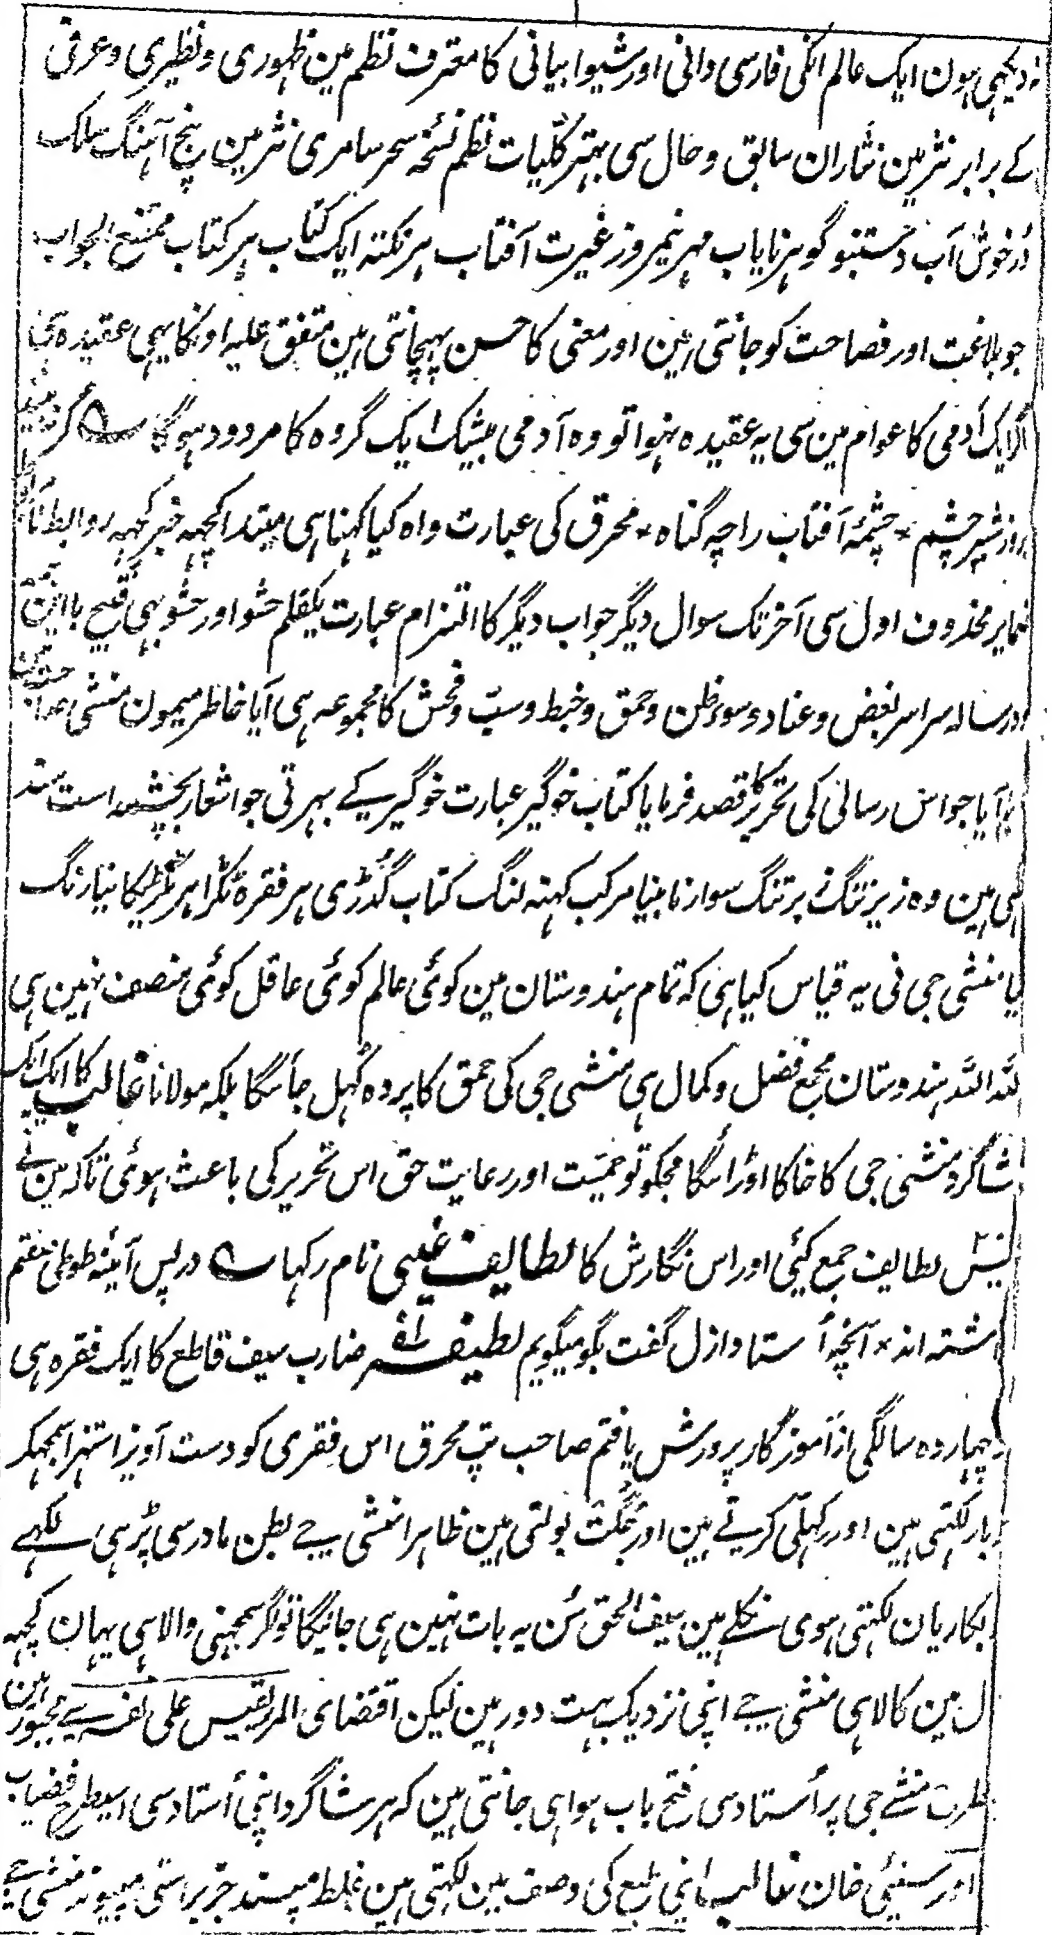 نہ دیکہی ہون ایک عالم انکی فارسی دانی اور شیوا بیانی کا معترف نظم مین ظہوری و نظیری و عرفی
کے برابر نثر مین نثاران سابق و حال سی بہتر کلّیات نظم نسخہ سحر سامری نثر مین پنج آہنگ سلک
دُر خوش آب دستنبو گوہر نایاب مہر نیمروز غیرت آفتاب ہر نکتہ ایک کتاب ہر کتاب ممتنع الجواب
جو بلاغت اور فصاحت کو جانتی ہین اور معنی کا حسن پہچانتی ہین متفق علیہ اونکا یہی عقیدہ ہی
اگر ایک آدمی کا عوام مین سی یہ عقیدہ نہوا تو وہ آدمی بیشک ایک گروہ کا مردود ہوگا ؎ گر نہ بیند
بروز شپرہ چشم * چشمۂ آفتاب را چہ گناہ * محرق کی عبارت واہ کیا کہنا ہی مبتدا کچہہ خبر کچہہ روابط
ضمایر محذوف اول سی آخر تک سوال دیگر جواب دیگر کا التزام عبارت یکقلم حشو اور حشو بہی قبیح با این
اور رسالہ سراسر بغض و عناد و سوء ظن و حمق و خبط و سبّ و فحش کا مجموعہ ہی آیا خاطر میمون منشی
یہ آیا جو اس رسالی کی تحریر کا قصد فرمایا کتاب خوگیر عبارت خوگیر کے بہرتی جو اشعار بحیثیت سند
لکہی ہین وہ زیر تنگ زبر تنگ سوار نابینا مرکب کہنہ لنگ کتاب گڈری ہر فقرہ ٹکڑا ہر ٹکڑیکا نیا رنگ
یا منشی جی نی یہ قیاس کیا ہی کہ تمام ہندوستان مین کوئی عالم کوئی عاقل کوئی منصف نہین ہی
للہ الحمد ہندوستان مجمع فضل و کمال ہی منشی جی کی حمق کا پردہ کہل جائیگا بلکہ مولانا غالب کا ایک ایک
شاگرد منشی جی کا خاکا اوڑائیگا مجکو تو حمیّت اور رعایت حق اس تحریر کی باعث ہوئی تا کہ مین نے
لطایف جمع کیئی اور اس نگارش کا لطایف غیبی نام رکہا ؎ در پس آئینہ طوطی صفتم
داشتہ اند * آنچہ اُستاد ازل گفت بگو میگویم لطیفہ ضارب سیف قاطع کا ایک فقرہ ہی
چہاردہ سالگی از آموزگار پرورش یافتم صاحب تپ محرق اس فقری کو دست آویز استہزا سمجہکر
بار لکہتی ہین اور کہلّی کرتے ہین اور جُگت بولتی ہین ظاہرا منشی جے بطن مادر سی پڑہی لکہے
لکہتی ہوی نکلے ہین سیف الحق سُن یہ بات نہین ہی جائیگا تو گر سمجہنی والا ہی یہان کچہہ
دال مین کالا ہی منشی جے اپنی نزدیک بہت دور ہین لیکن اقتضای المرء یقیس علی نفسہ سے مجبور ہین
طرح منشے جی پر اُستاد سی فتح باب ہوا ہی جانتی ہین کہ ہر شاگرد اپنی اُستاد سی اسیطرح فیضیاب
اور سنیئی خان غالب اپنی طبع کی وصف مین لکہتی ہین غلط مپسند جز براستی منشی جے